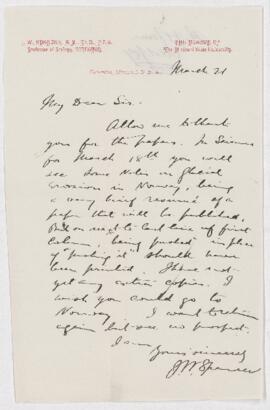 March 21
My Dear Sir.
Allow me to thank
you for the papers. In Science
for March 18th you will
see some Notes in Glacial
Erosion in Norway, being
a very brief resumé of a
paper that will be published,
But on next to last line of first
Column, being pushed in place
of "pushing it" should have
been printed. I have not
yet any extra copies. I
wish you could go to
Norway I want to return
again but see no prospect.
I am
Yours sincerely
J. W. Spencer